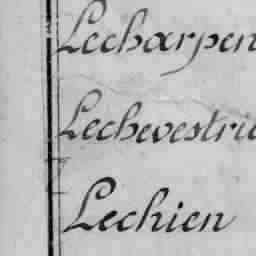 Lecharpen
Lechevestrie
Lechien